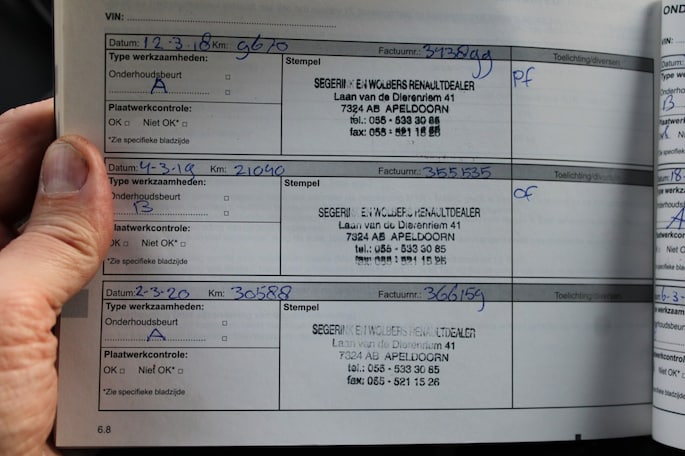 VIN:
Datum: 12-3-18 Km: 9670 Factuurnr.: 343899 Toelichting/diversen
Type werkzaamheden: Stempel pf
Onderhoudsbeurt
A
Plaatwerkcontrole:
OK Niet OK*
*Zie specifieke bladzijde
SEGERINK EN WOLBERS RENAULTDEALER
Laan van de Dierenriem 41
7324 AB APELDOORN
tel.: 055 - 533 30 85
fax: 055 - 521 15 26
Datum: 4-3-19 Km: 21040 Factuurnr.: 355535 Toelichting/diversen
Type werkzaamheden: Stempel of
Onderhoudsbeurt
B
Plaatwerkcontrole:
OK Niet OK*
*Zie specifieke bladzijde
SEGERINK EN WOLBERS RENAULTDEALER
Laan van de Dierenriem 41
7324 AB APELDOORN
tel.: 055 - 533 30 85
fax: 055 - 521 15 26
Datum: 2-3-20 Km: 30588 Factuurnr.: 366159 Toelichting/diversen
Type werkzaamheden: Stempel
Onderhoudsbeurt
A
Plaatwerkcontrole:
OK Niet OK*
*Zie specifieke bladzijde
SEGERINK EN WOLBERS RENAULTDEALER
Laan van de Dierenriem 41
7324 AB APELDOORN
tel.: 055 - 533 30 85
fax: 055 - 521 15 26
6.8
VIN: